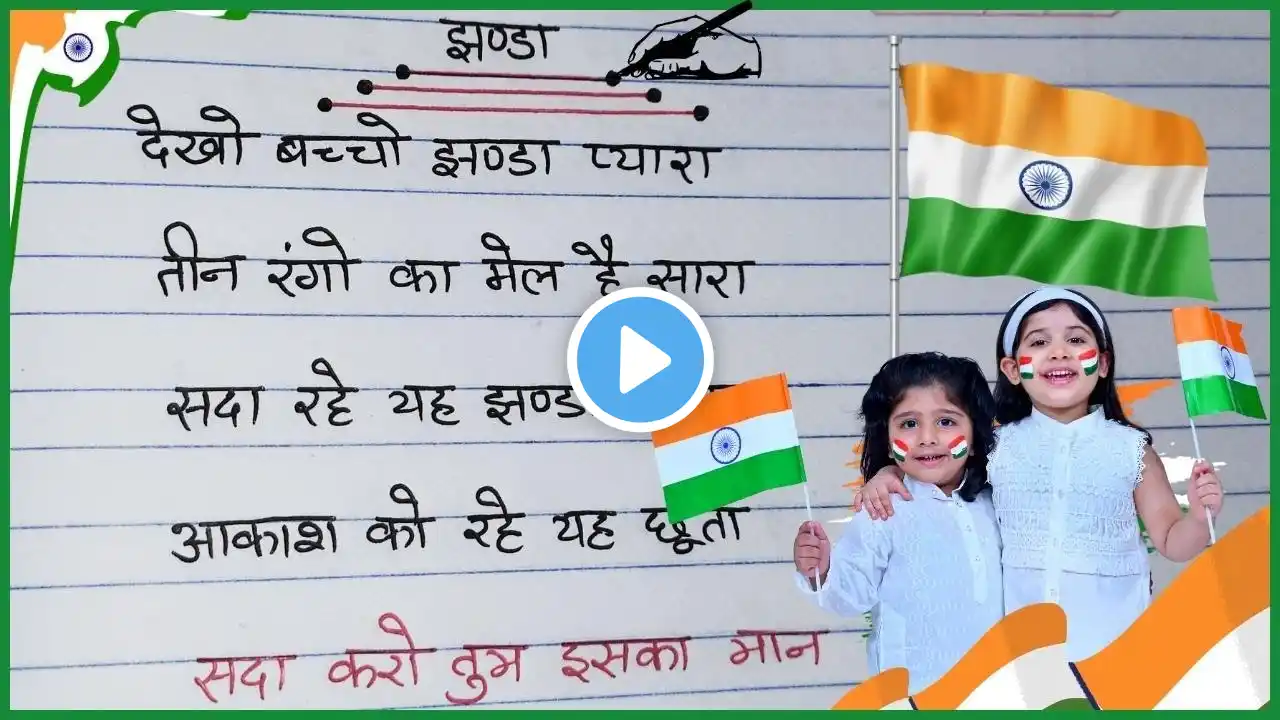 झण्डा
देखो बच्चो झण्डा प्यारा
तीन रंगो का मेल है सारा
सदा रहे यह
आकाश को रहे यह छूता
सदा करो तुम इसका मान